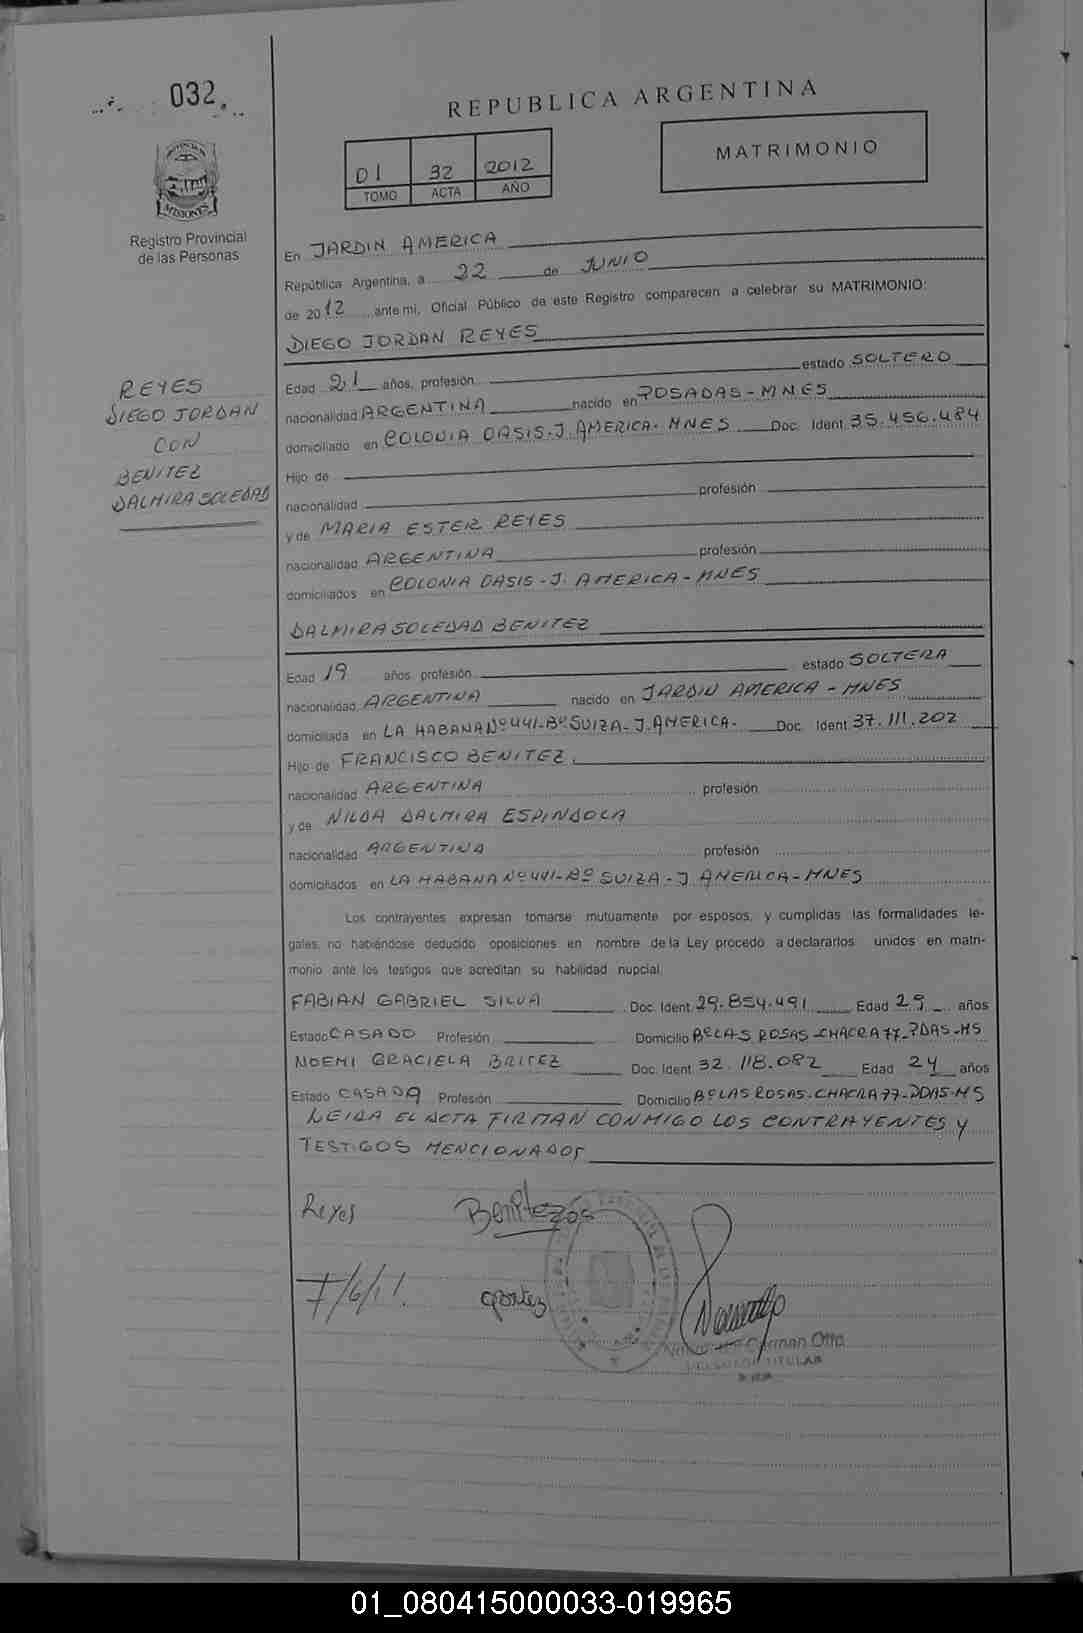 032
REPUBLICA ARGENTINA
01 32 2012
TOMO ACTA AÑO
MATRIMONIO
MISIONES
Registro Provincial
de las Personas
REYES
DIEGO JORDAN
CON
BENITEZ
DALMIRA SOLEDAD
En JARDIN AMERICA
República Argentina, a 22 de JUNIO
de 2012 ante mi, Oficial Público de este Registro comparecen a celebrar su MATRIMONIO:
DIEGO JORDAN REYES
Edad 21 años, profesión estado SOLTERO
nacionalidad ARGENTINA nacido en POSADAS - MNES
domiciliado en COLONIA OASIS-J. AMERICA- MNES Doc. Ident. 35.456.484
Hijo de
nacionalidad profesión
y de MARIA ESTER REYES
nacionalidad ARGENTINA profesión
domiciliados en COLONIA OASIS - J. AMERICA - MNES
DALMIRA SOLEDAD BENITEZ
Edad 19 años profesión estado SOLTERA
nacionalidad ARGENTINA nacido en JARDIN AMERICA - MNES
domiciliada en LA HABANA Nº 441-Bº SUIZA- J. AMERICA- Doc. Ident. 37.111.202
Hijo de FRANCISCO BENITEZ.
nacionalidad ARGENTINA profesión
y de NILDA DALMIRA ESPINDOLA
nacionalidad ARGENTINA profesión
domiciliados en LA HABANA Nº 441-Bº SUIZA - J AMERICA-MNES
Los contrayentes expresan tomarse mutuamente por esposos, y cumplidas las formalidades le-
gales, no habiéndose deducido oposiciones en nombre de la Ley procedo a declararlos unidos en matri-
monio ante los testigos que acreditan su habilidad nupcial.
FABIAN GABRIEL SILVA Doc. Ident. 29.854.491 Edad 29 años
Estado CASADO Profesión Domicilio Bº LAS ROSAS-CHACRA 77-PDAS-MS
NOEMI GRACIELA BRITEZ Doc. Ident. 32.118.082 Edad 24 años
Estado CASADA Profesión Domicilio Bº LAS ROSAS-CHACRA 77-PDAS-MS
LEIDA EL ACTA FIRMAN CONMIGO LOS CONTRAYENTES Y
TESTIGOS MENCIONADOS
Reyes Benitez
German Otto
TITULAR
01_080415000033-019965